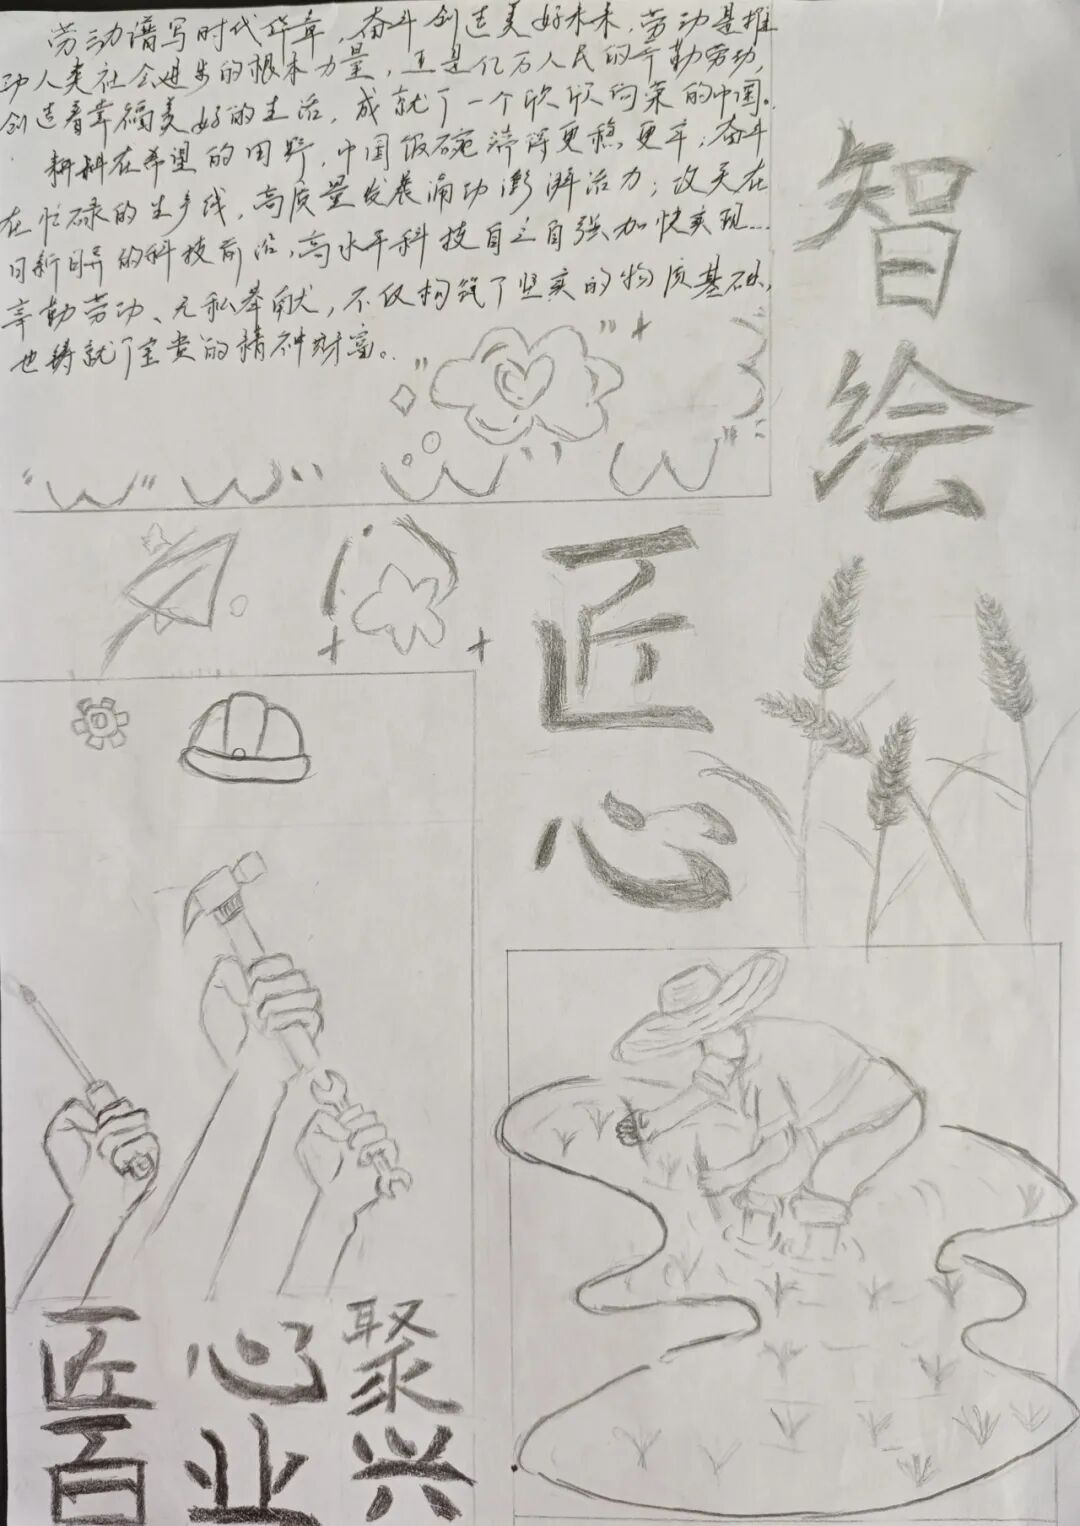 劳动谱写时代华章，奋斗创造美好未来，劳动是推
动人类社会进步的根本力量，正是亿万人民的辛勤劳动，
创造着幸福美好的生活，成就了一个欣欣向荣的中国。
耕耘在希望的田野，中国饭碗端得更稳更牢；奋斗
在忙碌的生产线，高质量发展涌动澎湃活力；攻关在
日新月异的科技前沿，高水平科技自立自强加快实现…
辛勤劳动、无私奉献，不仅构筑了坚实的物质基础，
也铸就了宝贵的精神财富。
智
绘
匠
心
匠心聚
百业兴